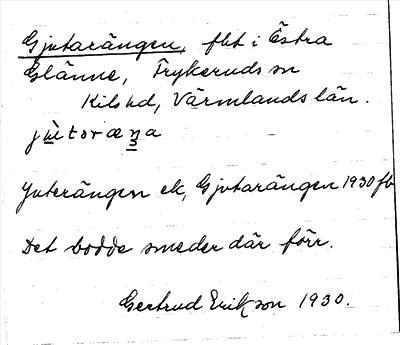 Gjutarängen, fht i Östra
Glänne, Frykeruds sn
Kils hd, Värmlands län.
Juterängen ek, Gjutarängen 1930 fb
Det bodde smeder där förr.
Gertrud Erikson 1930.